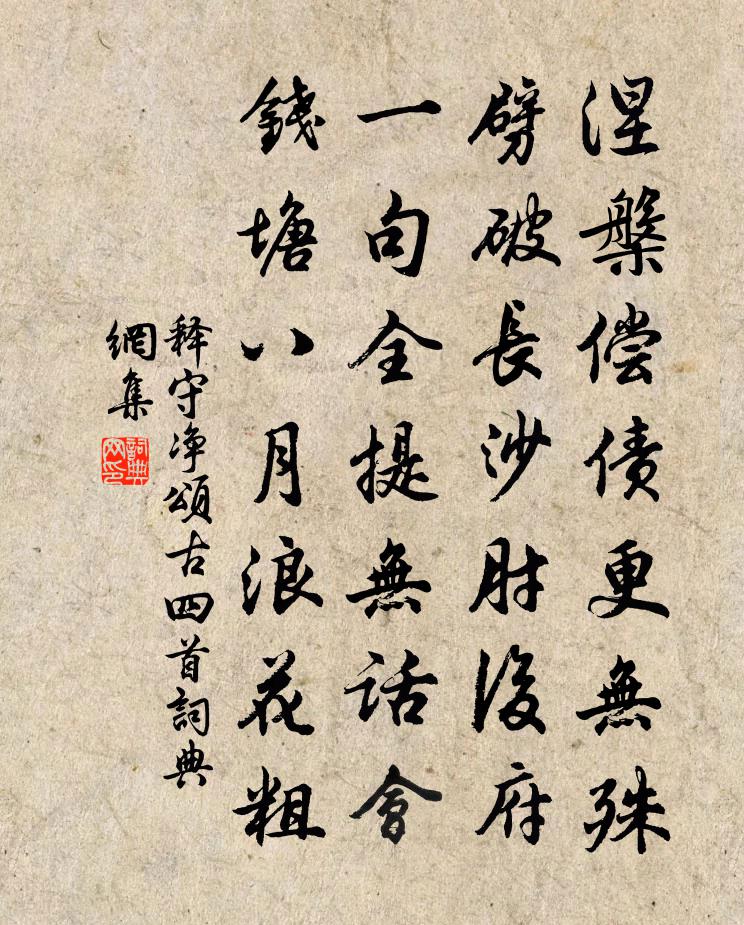 涅槃偿债更無殊
劈破長沙肘後府
一句全提無話會
錢塘八月浪花粗
释守净頌古四首詞典
網集
詞典
网印